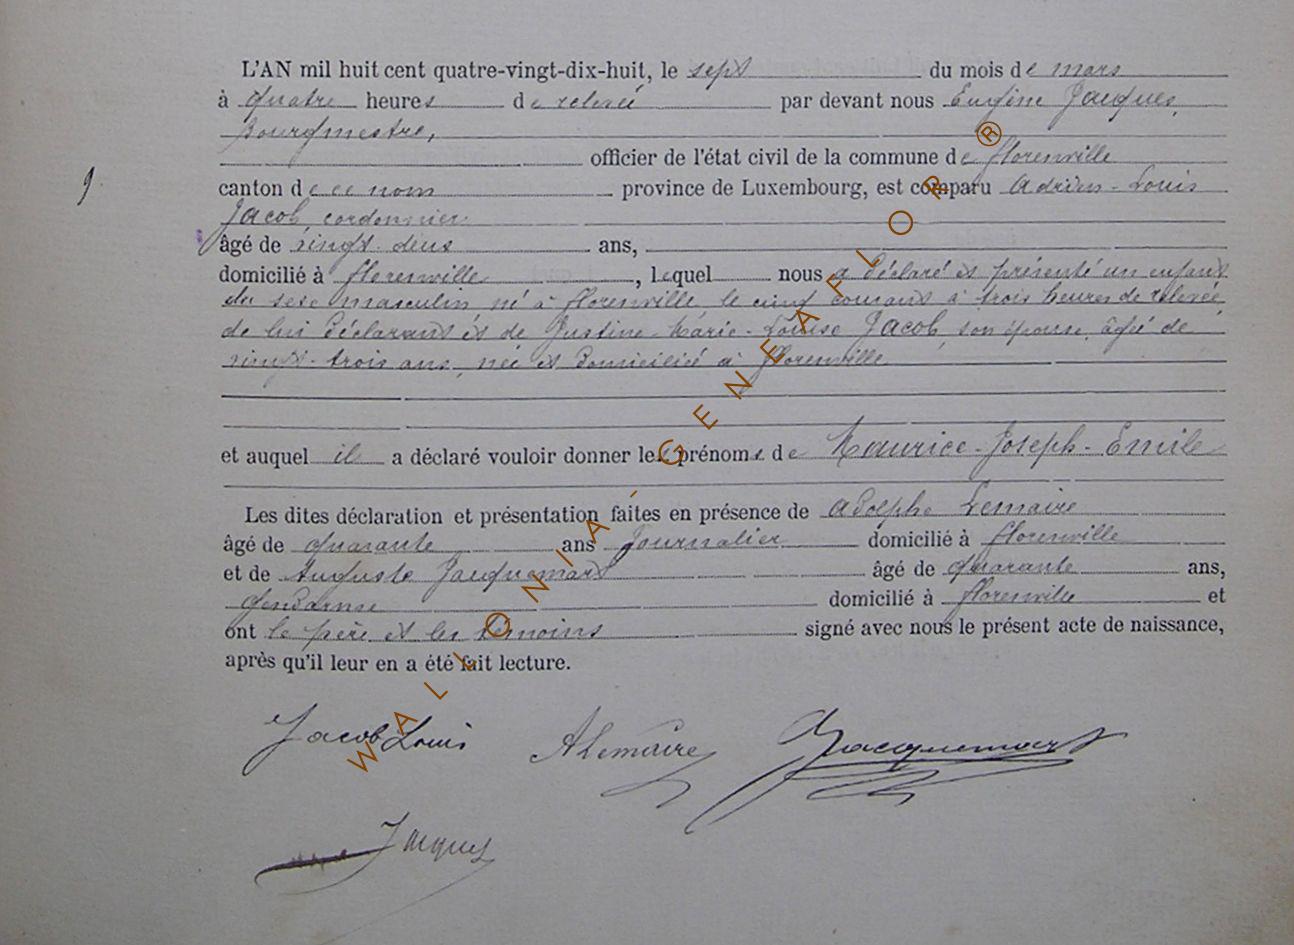 L'AN mil huit cent quatre-vingt-dix-huit, le sept du mois de mars
à quatre heures de relevée par devant nous Eugène Jacques,
Bourgmestre,
officier de l'état civil de la commune de Florenville
9.
canton de ce nom province de Luxembourg, est comparu Adrien-Louis
Jacob, cordonnier
âgé de vingt-deux ans,
domicilié à Florenville, lequel nous a déclaré et présenté un enfant
du sexe masculin né à Florenville le cinq courant à trois heures de relevée,
de lui déclarant et de Justine-Marie-Louise Jacob, son épouse, âgée de
vingt-trois ans, née et domiciliée à Florenville
et auquel il a déclaré vouloir donner les prénoms de Maurice-Joseph-Emile
Les dites déclaration et présentation faites en présence de Adolphe Lemaire
âgé de quarante ans journalier domicilié à Florenville
et de Auguste Jacquemart âgé de quarante ans,
Gendarme domicilié à Florenville et
ont le père et les témoins signé avec nous le présent acte de naissance,
après qu'il leur en a été fait lecture.
Jacob Louis ALemaire Jacquemart
Jacques
WALLONIA-GENEAFLOR®